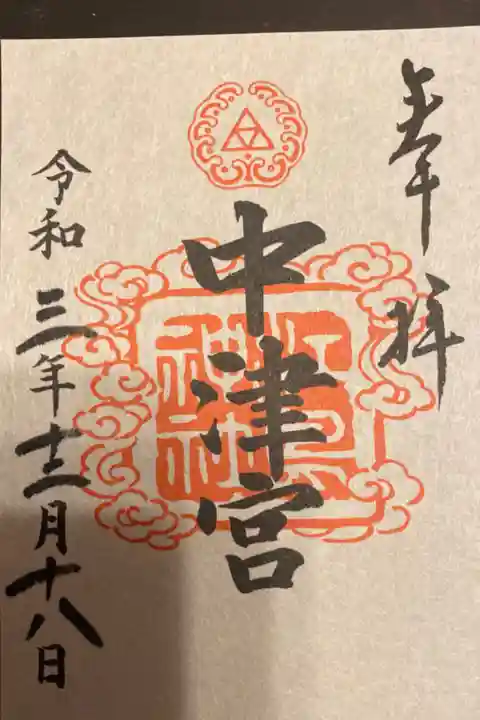 奉拝
中津宮
神社
令和三年十二月十八日